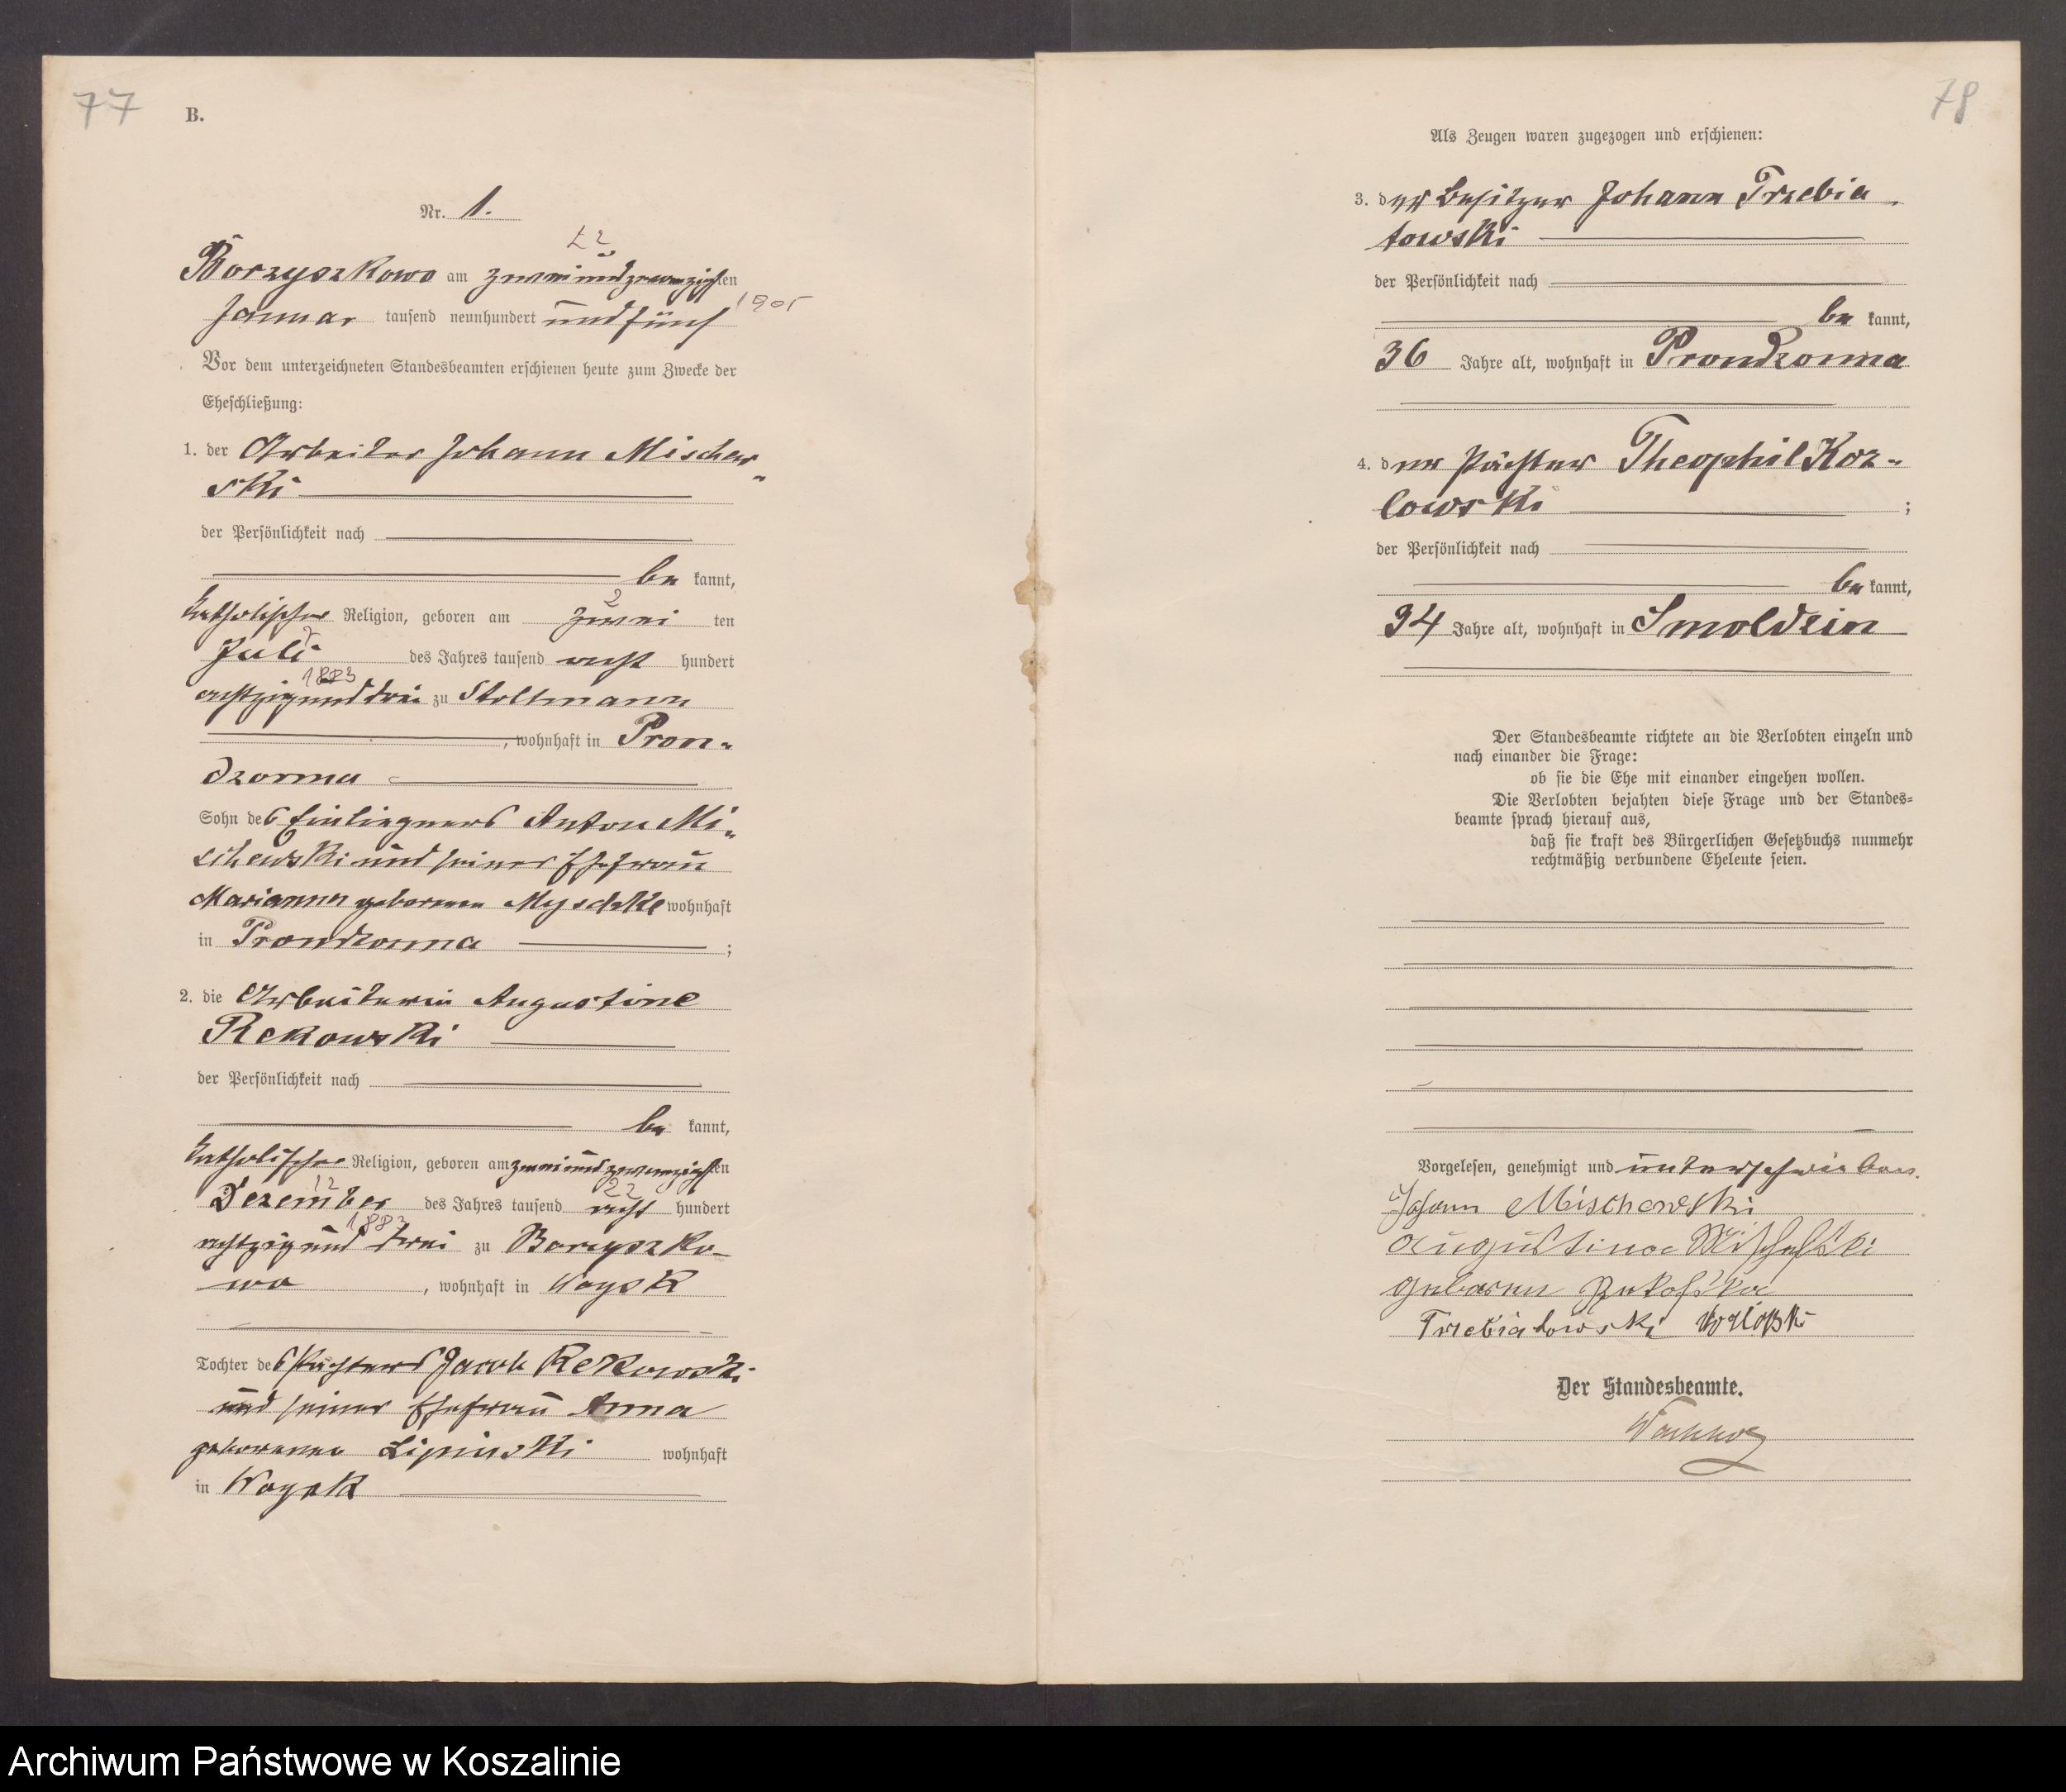 77
B.
Nr. 1.
22
Borzyszkowo am zweiundzwanzigsten
1905
Januar tausend neunhundert und fünf
Vor dem unterzeichneten Standesbeamten erschienen heute zum Zwecke der
Eheschließung:
1. der Arbeiter Johann Mischew-
ski
der Persönlichkeit nach
be kannt,
katholischer Religion, geboren am zwei ten
2
Juli des Jahres tausend acht hundert
7
1883
achtzig und drei zu Stoltmann
, wohnhaft in Pron-
dzonna
Sohn des Einliegers Anton Mi-
schewski und seiner Ehefrau
Marianna geborenen wohnhaft
in Prondzonna ;
2. die Arbeiterin Augustine
Rekowski
der Persönlichkeit nach
be kannt,
katholischer Religion, geboren am zweiundzwanzigsten
12 22
Dezember des Jahres tausend acht hundert
1883
achtzig und drei zu Borzyszko-
wo , wohnhaft in Woysk
Tochter des Pächters Jacob Rekowski
und seiner Ehefrau Anna
geborenen Lipinski wohnhaft
in Woysk
78
Als Zeugen waren zugezogen und erschienen:
3. der Besitzer Johann Trzebia
towski
der Persönlichkeit nach
be kannt,
36 Jahre alt, wohnhaft in Prondzonna
4. der Pächter Theophil Koz-
lowski ;
der Persönlichkeit nach
be kannt,
34 Jahre alt, wohnhaft in Smoldzin
Der Standesbeamte richtete an die Verlobten einzeln und
nach einander die Frage:
ob sie die Ehe mit einander eingehen wollen.
Die Verlobten bejahten diese Frage und der Standes-
beamte sprach hierauf aus,
daß sie kraft des Bürgerlichen Gesetzbuchs nunmehr
rechtmäßig verbundene Eheleute seien.
Vorgelesen, genehmigt und unterschrieben.
Johann Mischewski
Augustine
geboren
Trzebiatowski
Der Standesbeamte.
Archiwum Państwowe w Koszalinie